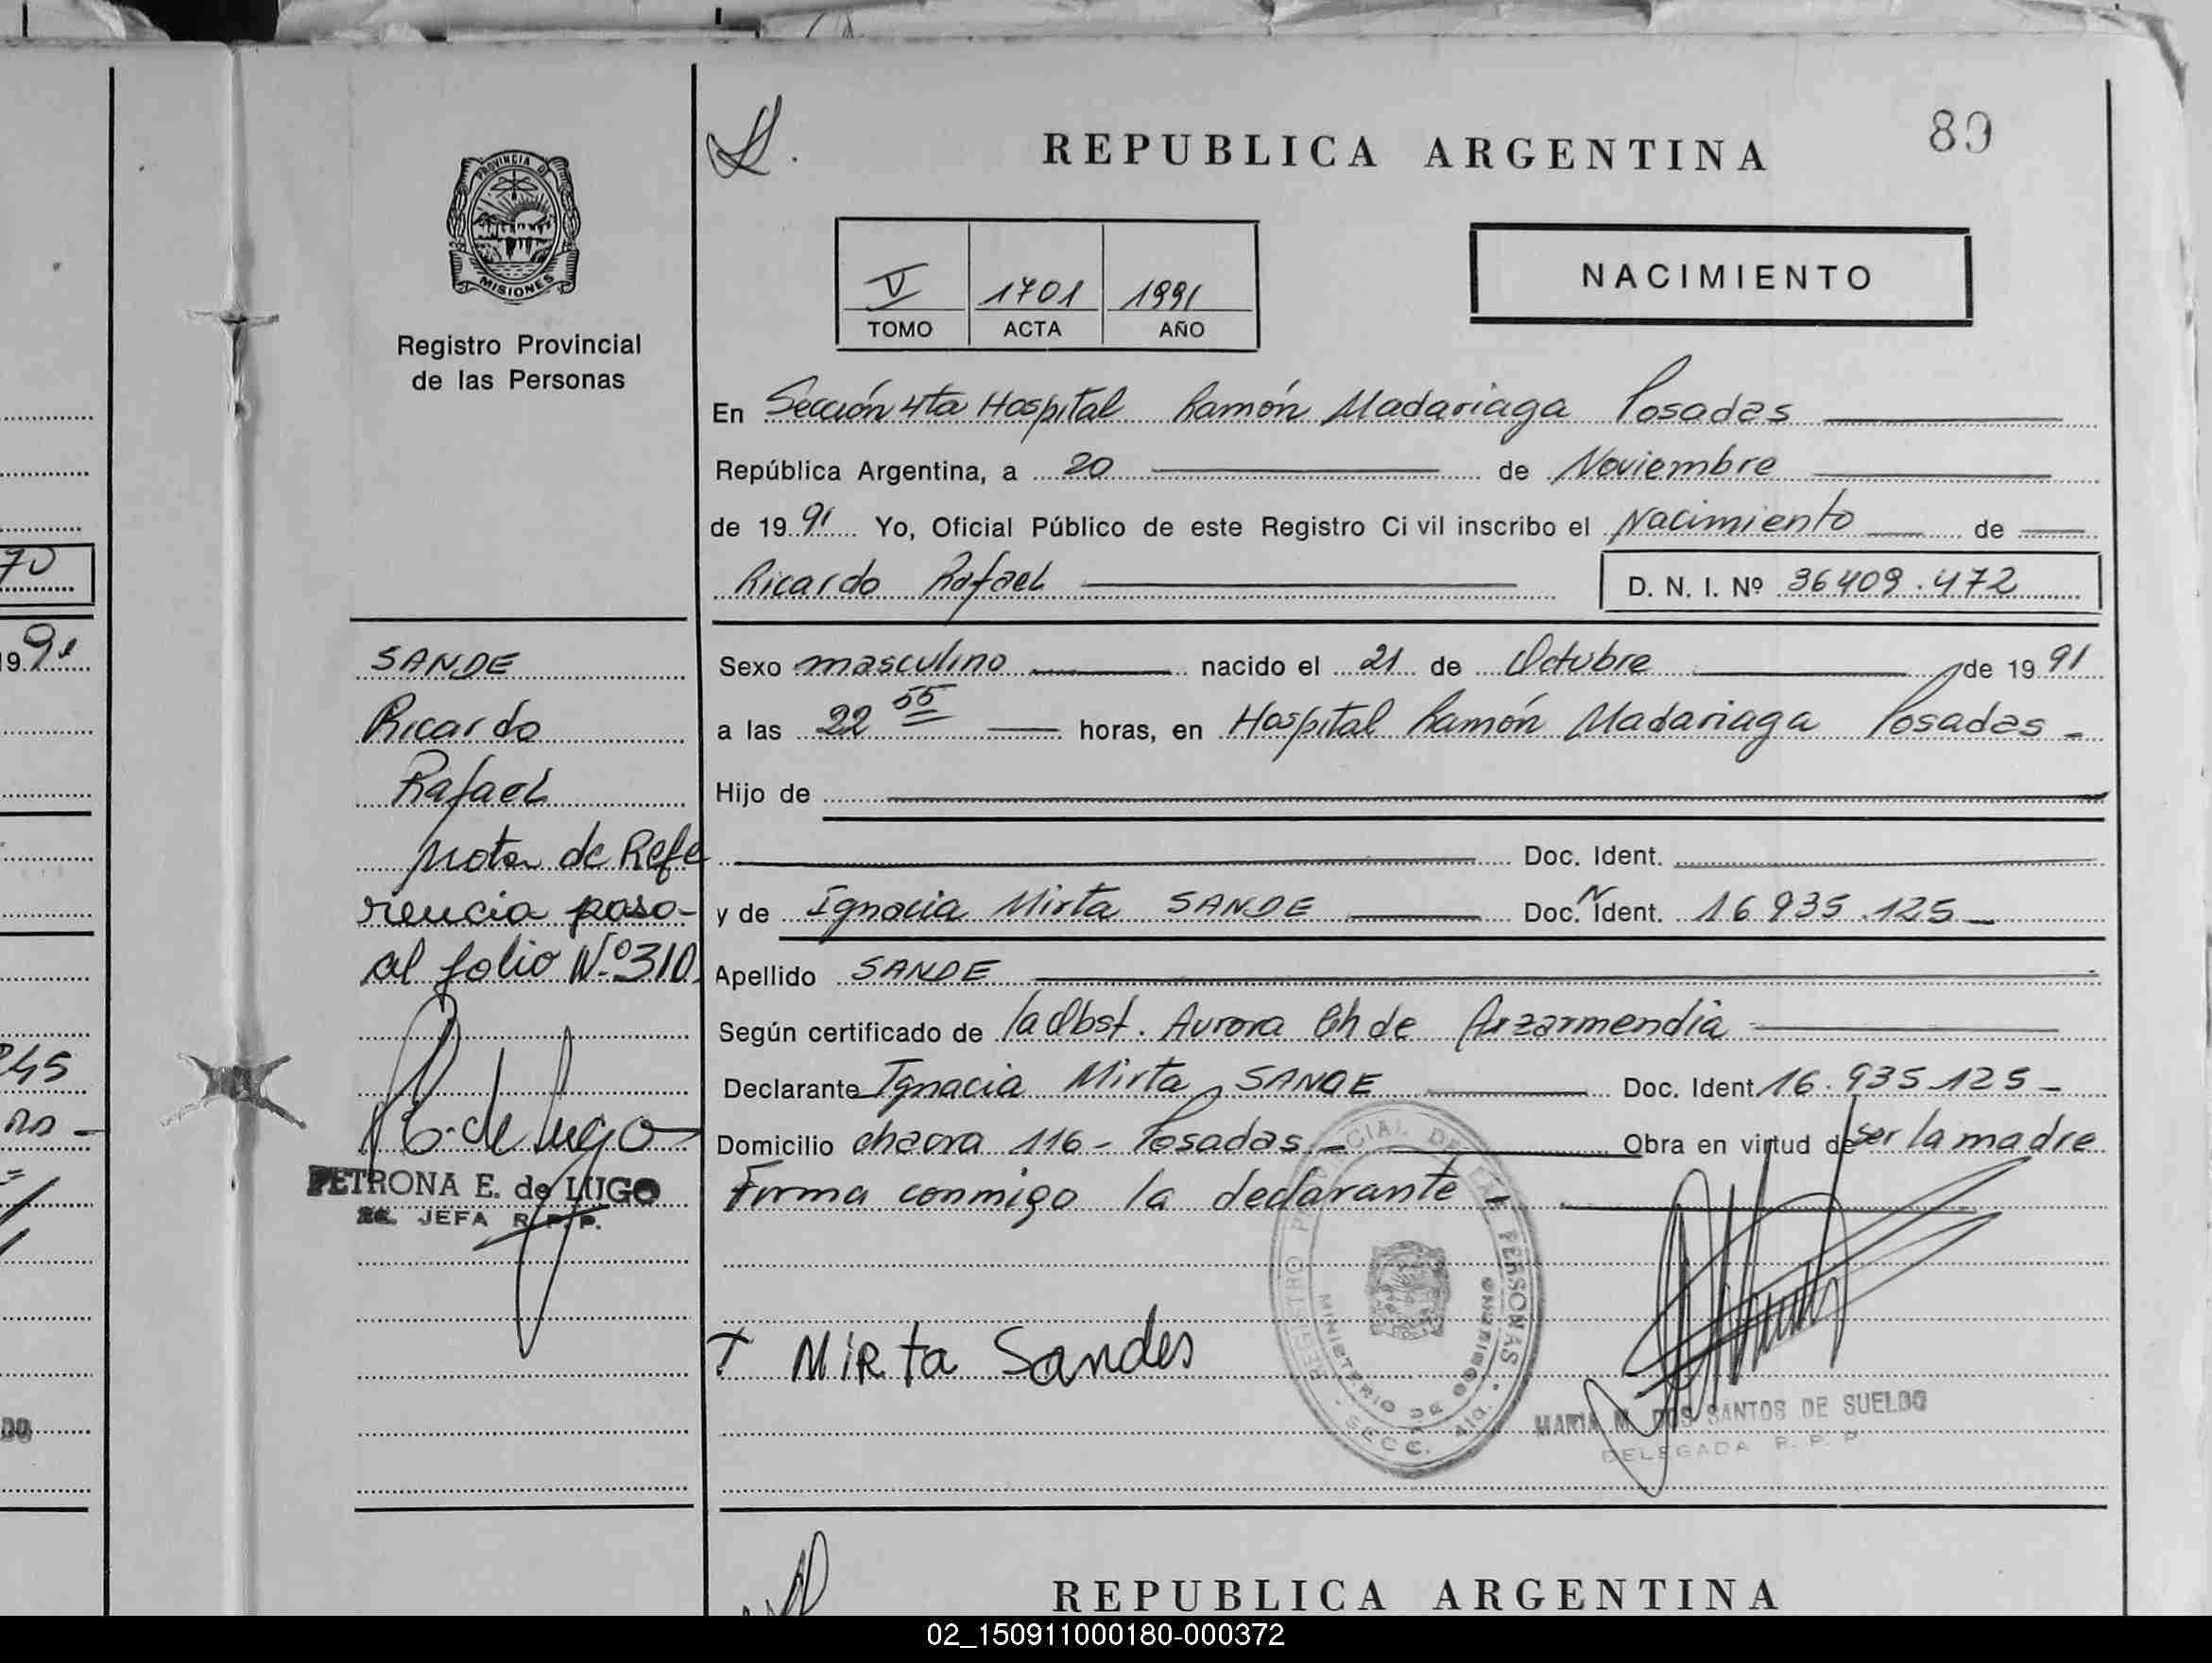 REPUBLICA ARGENTINA
89
PROVINCIA D
MISIONES
Registro Provincial
de las Personas
V 1701 1991
TOMO ACTA AÑO
NACIMIENTO
En Sección 4ta Hospital Ramón Madariaga Posadas
República Argentina, a 20 de Noviembre
de 19 91 Yo, Oficial Público de este Registro Ci vil inscribo el Nacimiento de
Ricardo Rafael D. N. I. Nº 36409.472
Sexo masculino nacido el 21 de Octubre de 19 91
a las 22 55 horas, en Hospital Ramón Madariaga Posadas -
Hijo de
Doc. Ident.
y de Ignacia Mirta SANDE Doc. Ident. 16 935.125 -
Apellido SANDE
Según certificado de la Obst. Aurora Ch de Arzarmendia
Declarante Ignacia Mirta SANDE Doc. Ident 16.935.125 -
Domicilio chacra 116 - Posadas - Obra en virtud de ser la madre
Firma conmigo la declarante -
SANDE
Ricardo
Rafael
Nota de Refe
rencia paso-
al folio N.º 310.
P E. de Lugo
PETRONA E. de LUGO
2a. JEFA R.P.P.
+ MiRta Sandes
REGISTRO PROVINCIAL DE LAS PERSONAS
MINISTERIO DE GOBIERNO
SECC. 4ta.
MARIA M. DOS SANTOS DE SUELDO
DELEGADA R. P. P.
REPUBLICA ARGENTINA
70
19 91
245
02_150911000180-000372